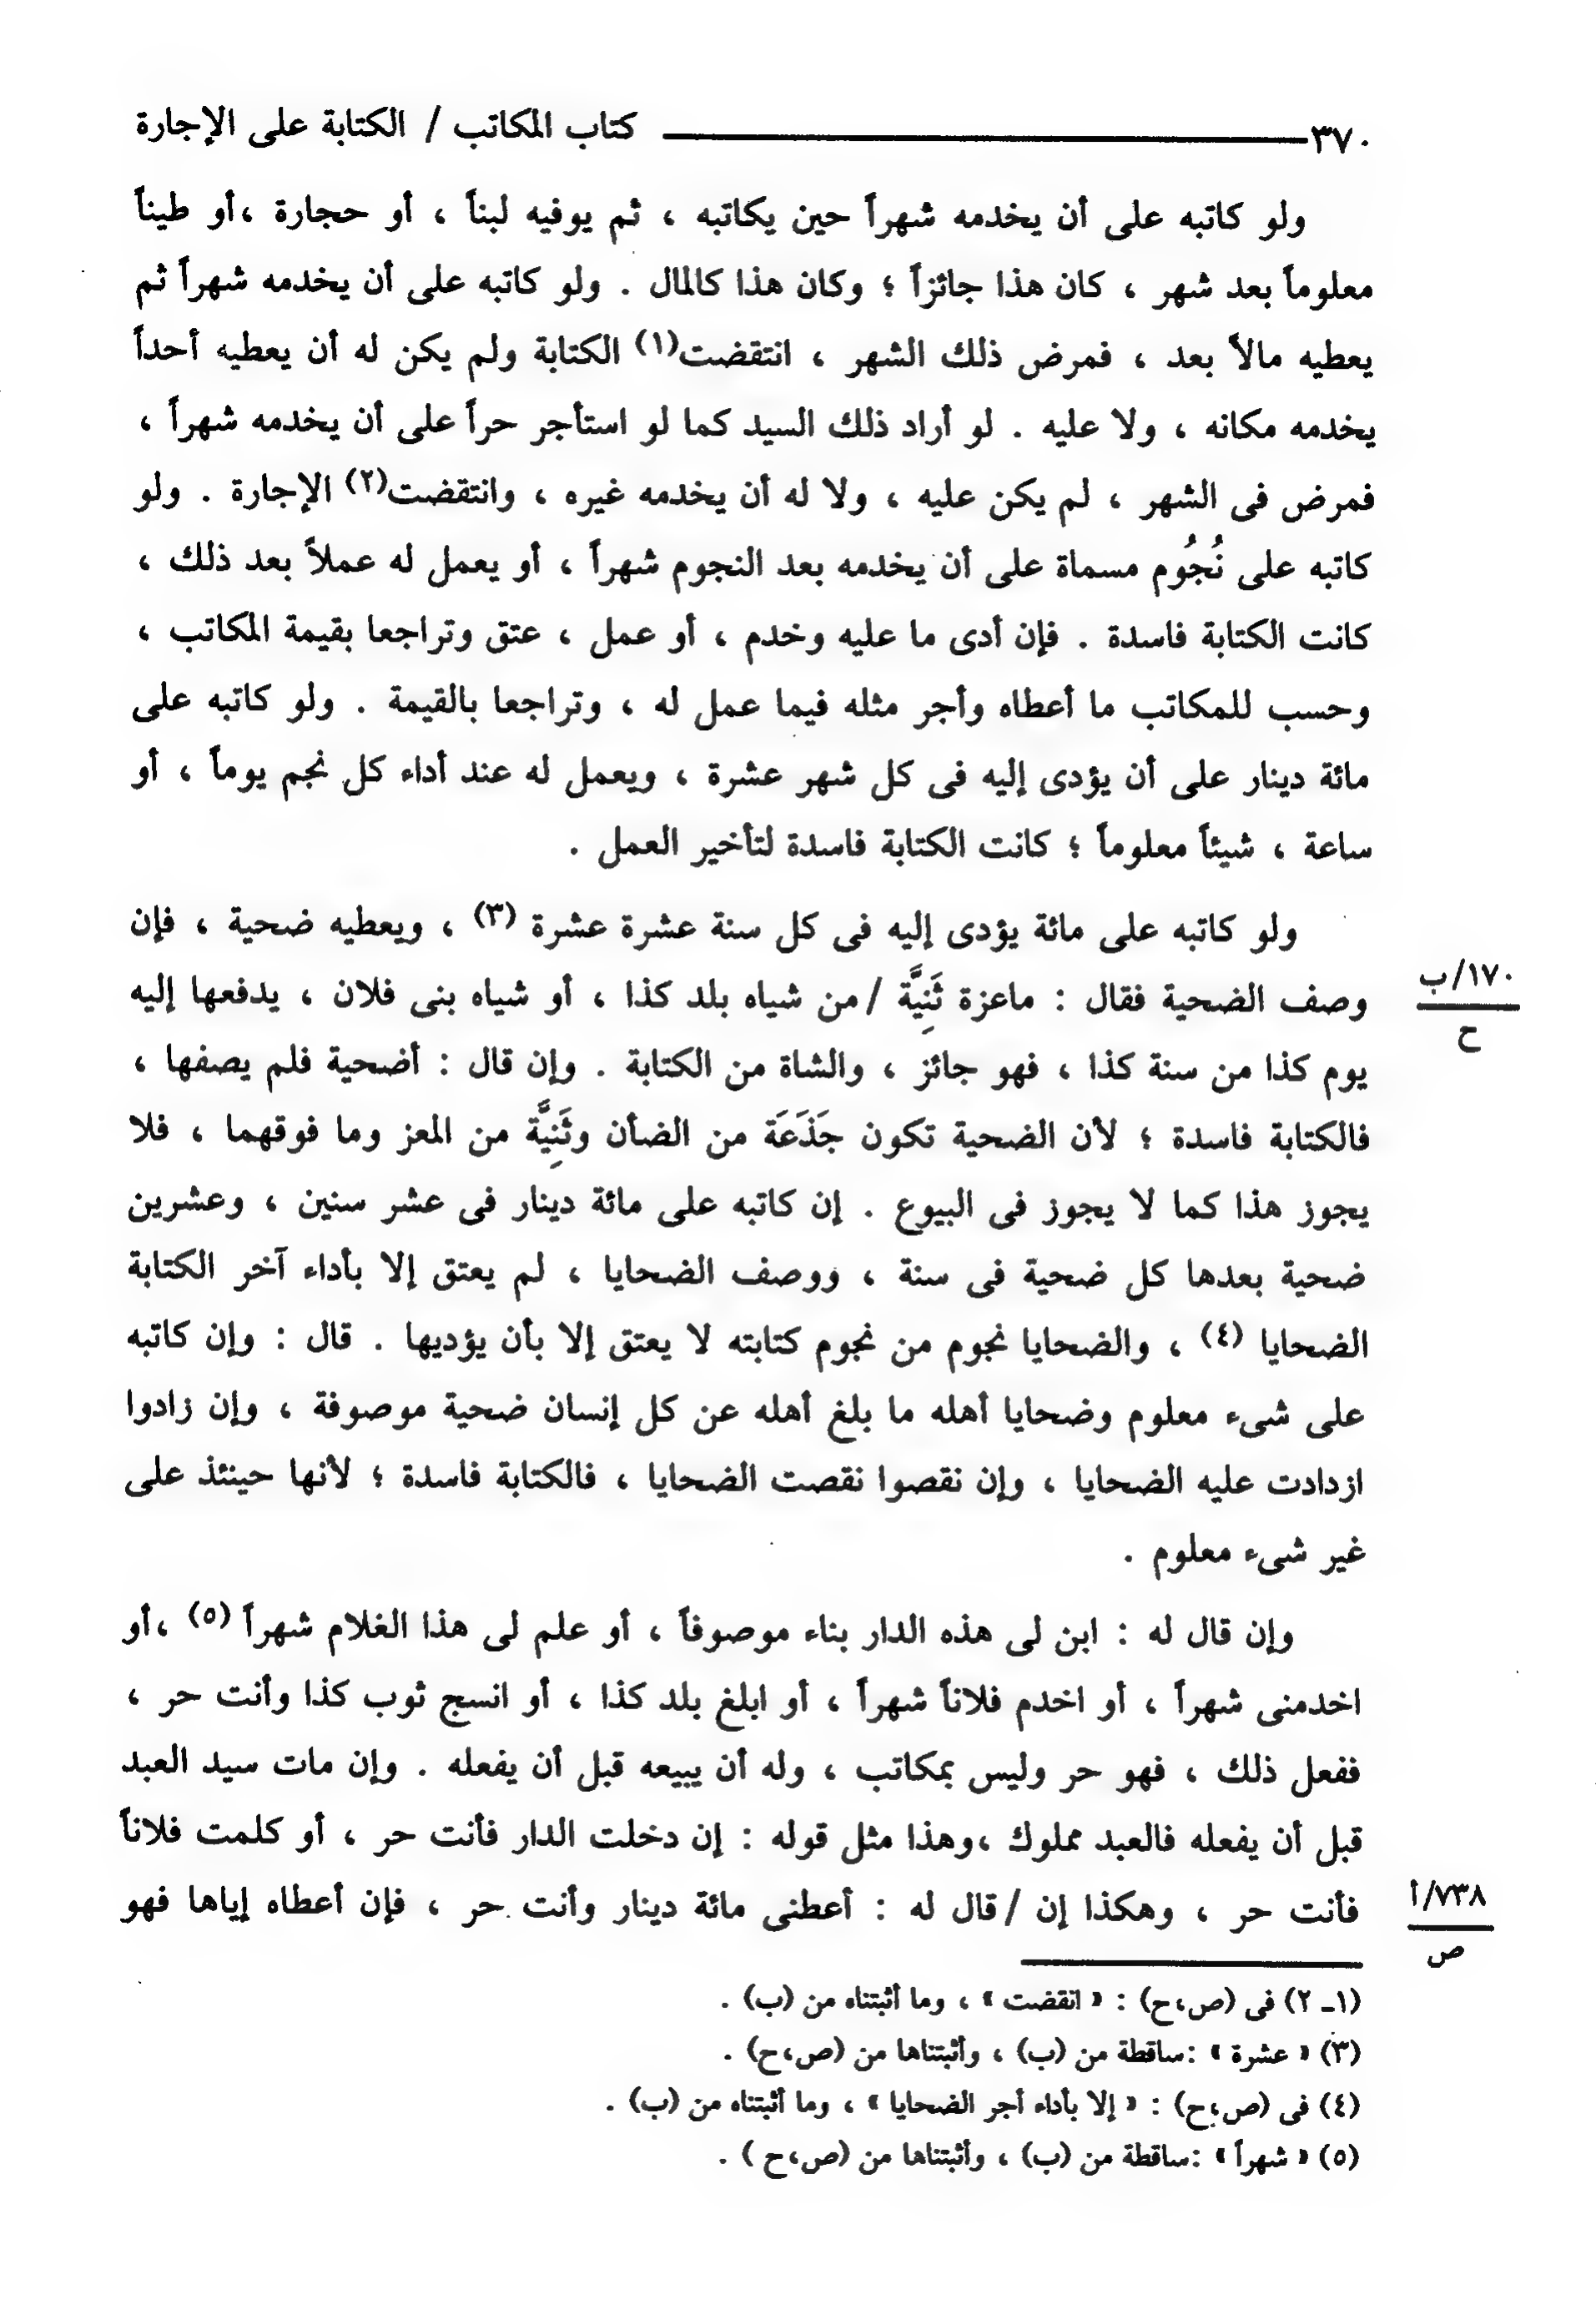 ٣٧٠ كتاب المكاتب / الكتابة على الإجارة
ولو كاتبه على أن يخدمه شهراً حين يكاتبه ، ثم يوفيه لبناً ، أو حجارة ،أو طيناً
معلوماً بعد شهر ، كان هذا جائزاً ؛ وكان هذا كالمال . ولو كاتبه على أن يخدمه شهراً ثم
يعطيه مالاً بعد ، فمرض ذلك الشهر ، انتقضت(١) الكتابة ولم يكن له أن يعطيه أحداً
يخدمه مكانه ، ولا عليه . لو أراد ذلك السيد كما لو استأجر حراً على أن يخدمه شهراً ،
فمرض فى الشهر ، لم يكن عليه ، ولا له أن يخدمه غيره ، وانتقضت(٢) الإجارة . ولو
كاتبه على نُجُوم مسماة على أن يخدمه بعد النجوم شهراً ، أو يعمل له عملاً بعد ذلك ،
كانت الكتابة فاسدة . فإن أدى ما عليه وخدم ، أو عمل ، عتق وتراجعا بقيمة المكاتب ،
وحسب للمكاتب ما أعطاه وأجر مثله فيما عمل له ، وتراجعا بالقيمة . ولو كاتبه على
مائة دينار على أن يؤدى إليه فى كل شهر عشرة ، ويعمل له عند أداء كل نجم يوماً ، أو
ساعة ، شيئاً معلوماً ؛ كانت الكتابة فاسدة لتأخير العمل .
ولو كاتبه على مائة يؤدى إليه فى كل سنة عشرة عشرة (٣) ، ويعطيه ضحية ، فإن
وصف الضحية فقال : ماعزة ثَنِيَّة / من شياه بلد كذا ، أو شياه بنى فلان ، يدفعها إليه
١٧٠/ب
ح
يوم كذا من سنة كذا ، فهو جائز ، والشاة من الكتابة . وإن قال : أضحية فلم يصفها ،
فالكتابة فاسدة ؛ لأن الضحية تكون جَذَعَة من الضأن وثَنِيَّة من المعز وما فوقهما ، فلا
يجوز هذا كما لا يجوز فى البيوع . إن كاتبه على مائة دينار فى عشر سنين ، وعشرين
ضحية بعدها كل ضحية فى سنة ، ووصف الضحايا ، لم يعتق إلا بأداء آخر الكتابة
الضحايا (٤) ، والضحايا نجوم من نجوم كتابته لا يعتق إلا بأن يؤديها . قال : وإن كاتبه
على شىء معلوم وضحايا أهله ما بلغ أهله عن كل إنسان ضحية موصوفة ، وإن زادوا
ازدادت عليه الضحايا ، وإن نقصوا نقصت الضحايا ، فالكتابة فاسدة ؛ لأنها حينئذ على
غير شىء معلوم .
وإن قال له : ابن لى هذه الدار بناء موصوفاً ، أو علم لى هذا الغلام شهراً (٥) ،أو
اخدمنى شهراً ، أو اخدم فلاناً شهراً ، أو ابلغ بلد كذا ، أو انسج ثوب كذا وأنت حر ،
ففعل ذلك ، فهو حر وليس بمكاتب ، وله أن يبيعه قبل أن يفعله . وإن مات سيد العبد
قبل أن يفعله فالعبد مملوك ،وهذا مثل قوله : إن دخلت الدار فأنت حر ، أو كلمت فلاناً
فأنت حر ، وهكذا إن / قال له : أعطنى مائة دينار وأنت حر ، فإن أعطاه إياها فهو
٧٣٨/أ
ص
(١ـ ٢) فى (ص،ح) : « انقضت » ، وما أثبتناه من (ب) .
(٣) « عشرة » :ساقطة من (ب) ، وأثبتناها من (ص،ح) .
(٤) فى (ص،ح) : « إلا بأداء أجر الضحايا » ، وما أثبتناه من (ب) .
(٥) « شهراً » :ساقطة من (ب) ، وأثبتناها من (ص،ح ) .